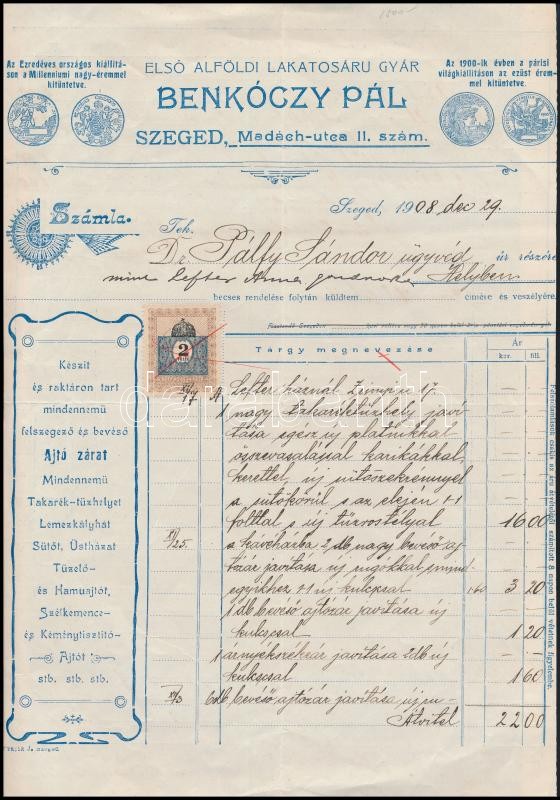 Az Ezredéves országos kiállítá-
son a Millenniumi nagy-éremmel
kitüntetve.
ELSŐ ALFÖLDI LAKATOSÁRU GYÁR
BENKÓCZY PÁL
SZEGED, Madách-utca 11. szám.
Az 1900-ik évben a párisi
világkiállitáson az ezüst érem-
mel kitüntetve.
Számla.
Szeged, 1908 dec 29.
Teh.
Dr Pálfy Sándor ügyvéd úr részére
mint Lefter Anna Helyben
becses rendelése folytán küldtem címére és veszélyére
Tárgy megnevezése
Ár
kor. fill.
2
Készit
és raktáron tart
mindennemű
felszegező és bevéső
Ajtó zárat
Mindennemű
Takarék-tűzhelyet
Lemezkályhát
Sütőt, Üstházat
Tüzelő-
és Hamuajtót,
Szélkemence-
és Kéménytisztitó-
Ajtót
stb. stb. stb.
A Lefter háznál
1 nagy Takaréktűzhely javi-
tása egész új platnikkal
összevasalással karikákkal,
kerettel, új sütőszekrénnyel
a sütőkörül s az elején 1-1
folttal s új tűzrostélyal 16 00
XI/25. a kávéházba 2 db nagy bevéső aj-
tózár javitása új rugokkal mind
egyikhez 1-1 új kulcsal 1.60 3 20
1 db bevéső ajtózár javitása új
kulcsal 1 20
1 árnyékszékzár javitása 2 db új
kulcsal 1 60
6 db bevéső ajtózár javitása, új
Átvitel 22 00